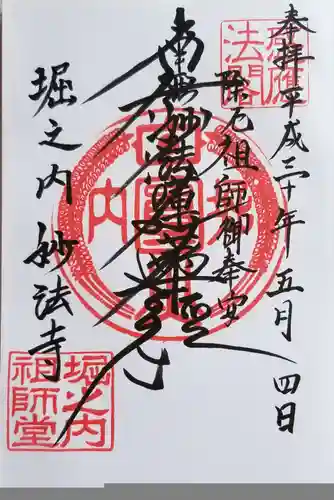 奉拝平成三十年五月四日
除厄祖師御奉安
南無妙法蓮華経
堀之内妙法寺
堀之内
祖師堂